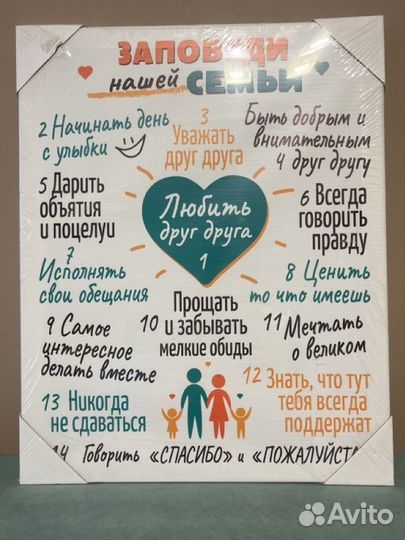 ЗАПОВЕДИ
нашей СЕМЬИ
2 Начинать день
с улыбки
3
Уважать
друг друга
Быть добрым и
внимательным
4 друг другу
5 Дарить
объятия
и поцелуи
Любить
друг друга
1
6 Всегда
говорить
правду
7
Исполнять
свои обещания
8 Ценить
то что имеешь
9 Самое
интересное
делать вместе
10 Прощать
и забывать
мелкие обиды
11 Мечтать
о великом
12 Знать, что тут
тебя всегда
поддержат
13 Никогда
не сдаваться
14 Говорить «СПАСИБО» и «ПОЖАЛУЙСТА
Avito